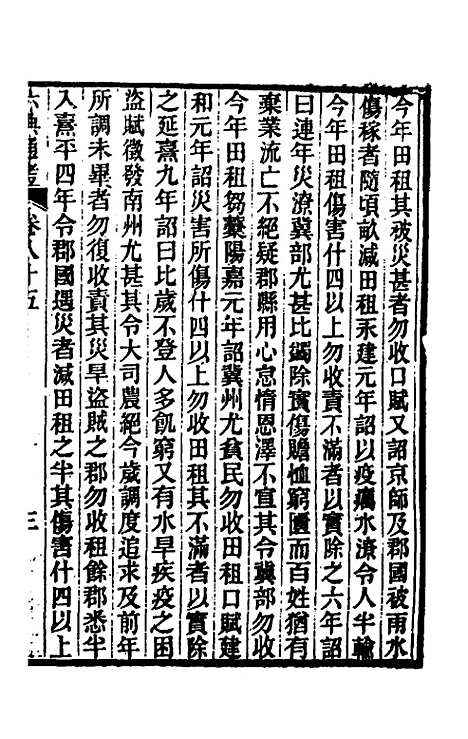 今年田租其被災甚者勿收口賦又詔京師及郡國被雨水
傷稼者隨頃畝減田租永建元年詔以疫癘水潦令人半輸
今年田租傷害什四以上勿收責不滿者以實除之六年詔
曰連年災潦冀部尤甚比蠲除實傷贍恤窮匱而百姓猶有
棄業流亡不絕疑郡縣用心怠惰恩澤不宣其令冀部勿收
今年田租芻藁陽嘉元年詔冀州尤貧民勿收田租口賦建
和元年詔災害所傷什四以上勿收田租其不滿者以實除
之延熹九年詔曰比歲不登人多飢窮又有水旱疾疫之困
盜賦徵發南州尤甚其令大司農絕今歲調度追求及前年
所調未畢者勿復收責其災旱盜賊之郡勿收租餘郡悉半
入熹平四年令郡國遇災者減田租之半其傷害什四以上
六典通考
卷八十五
三